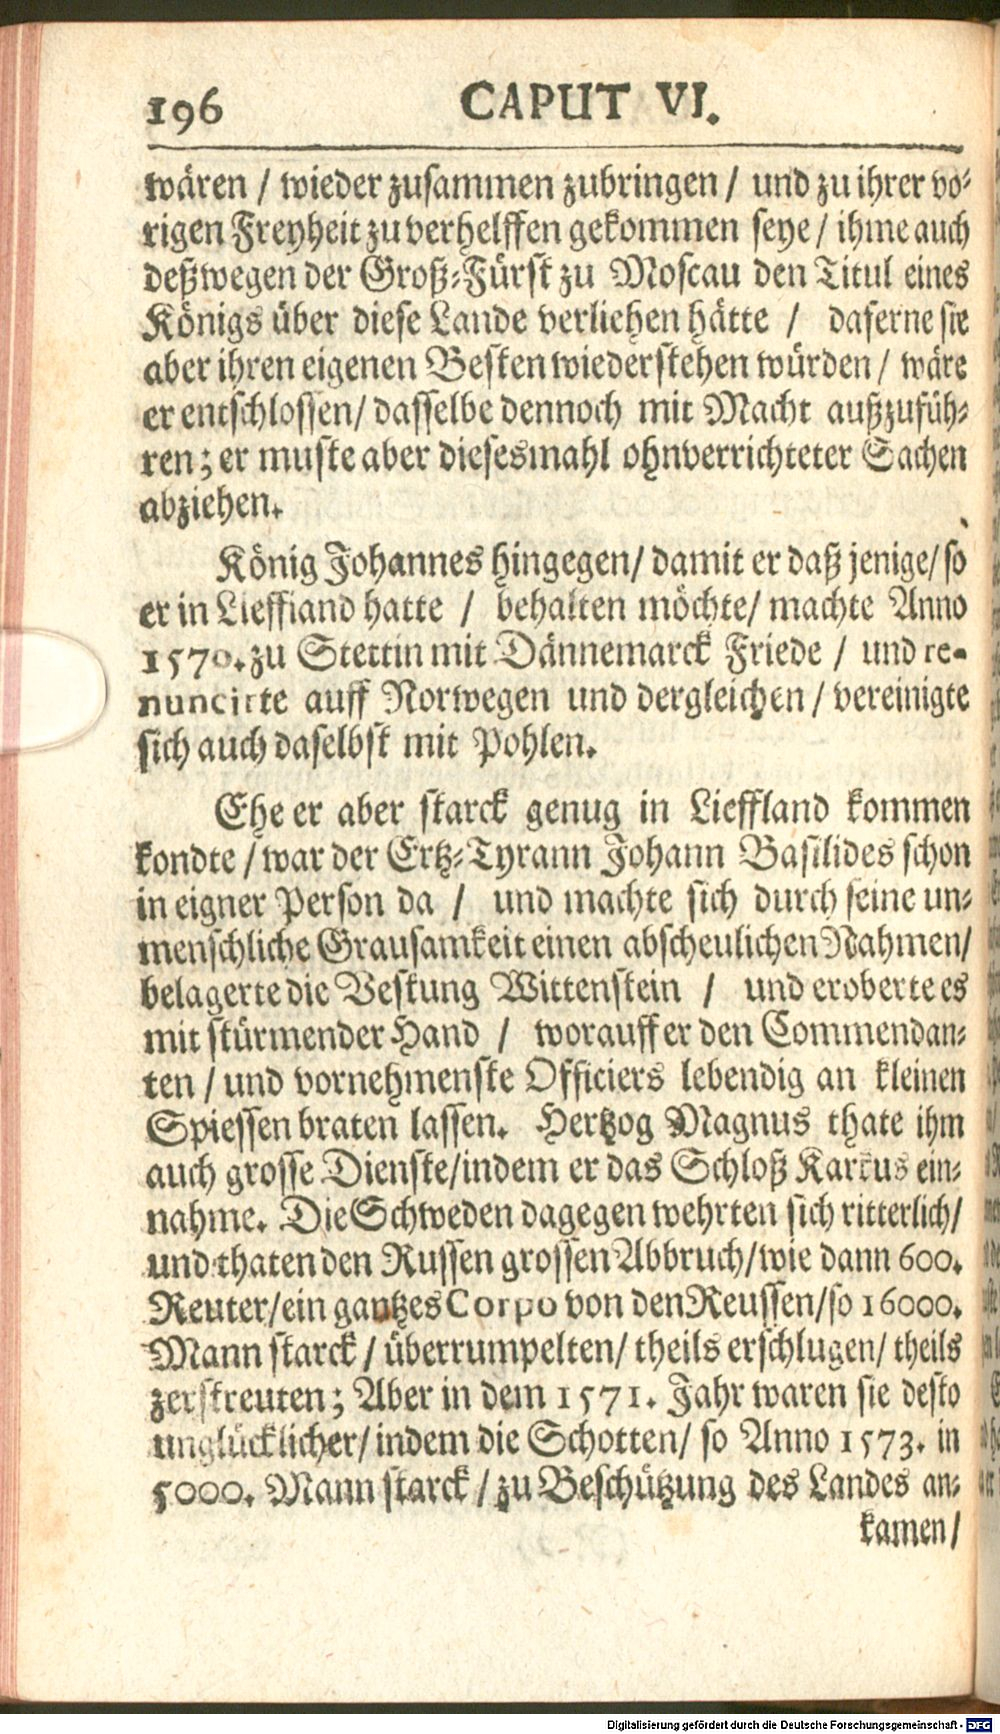 196 CAPUT VI.
wären / wieder zusammen zubringen / und zu ihrer vo-
rigen Freyheit zu verhelffen gekommen seye / ihme auch
deßwegen der Groß-Fürst zu Moscau den Titul eines
Königs über diese Lande verliehen hätte / daferne sie
aber ihren eigenen Besten wiederstehen würden / wäre
er entschlossen / dasselbe dennoch mit Macht außzufüh-
ren; er muste aber diesesmahl ohnverrichteter Sachen
abziehen.
König Johannes hingegen / damit er daß jenige / so
er in Lieffland hatte / behalten möchte / machte Anno
1570. zu Stettin mit Dännemarck Friede / und re-
nuncirte auff Norwegen und dergleichen / vereinigte
sich auch daselbst mit Pohlen.
Ehe er aber starck genug in Lieffland kommen
kondte / war der Ertz-Tyrann Johann Basilides schon
in eigner Person da / und machte sich durch seine un-
menschliche Grausamkeit einen abscheulichen Nahmen /
belagerte die Vestung Wittenstein / und eroberte es
mit stürmender Hand / worauff er den Commendan-
ten / und vornehmenste Officiers lebendig an kleinen
Spiessen braten lassen. Hertzog Magnus thate ihm
auch grosse Dienste / indem er das Schloß Karkus ein-
nahme. Die Schweden dagegen wehrten sich ritterlich /
und thaten den Russen grossen Abbruch / wie dann 600.
Reuter / ein gantzes Corpo von den Reussen / so 16000.
Mann starck / überrumpelten / theils erschlugen / theils
zerstreuten; Aber in dem 1571. Jahr waren sie desto
unglücklicher / indem die Schotten / so Anno 1573. in
5000. Mann starck / zu Beschützung des Landes an-
kamen /
Digitalisierung gefördert durch die Deutsche Forschungsgemeinschaft - DFG